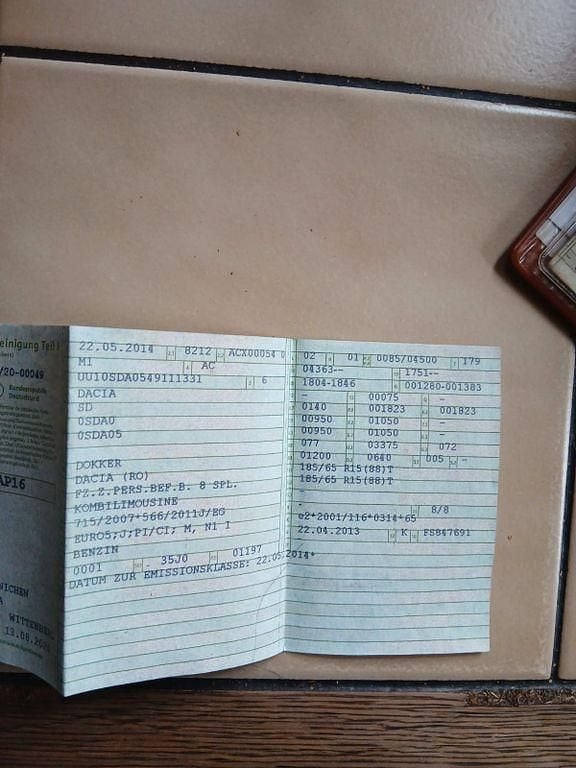 einigung Teil I
/20-00049
Bundesrepublik
Deutschland
AP16
NICHEN
WITTENBER
13.08.20
22.05.2014 8212 ACX00054 0
M1 AC
UU10SDA0549111331 6
DACIA
SD
0SDA0
0SDA05
DOKKER
DACIA (RO)
FZ.Z.PERS.BEF.B. 8 SPL.
KOMBILIMOUSINE
715/2007*566/2011J/EG
EURO5;J;PI/CI; M, N1 I
BENZIN
0001 - 35J0 01197
DATUM ZUR EMISSIONSKLASSE: 22.05.2014*
02 01 0085/04500 179
04363-- 1751--
1804-1846 001280-001383
- 00075 -
0140 001823 001823
00950 01050 -
00950 01050 -
077 03375 072
01200 0640 005 -
185/65 R15(88)T
185/65 R15(88)T
-
- 8/8
e2*2001/116*0314*65
22.04.2013 K FS847691